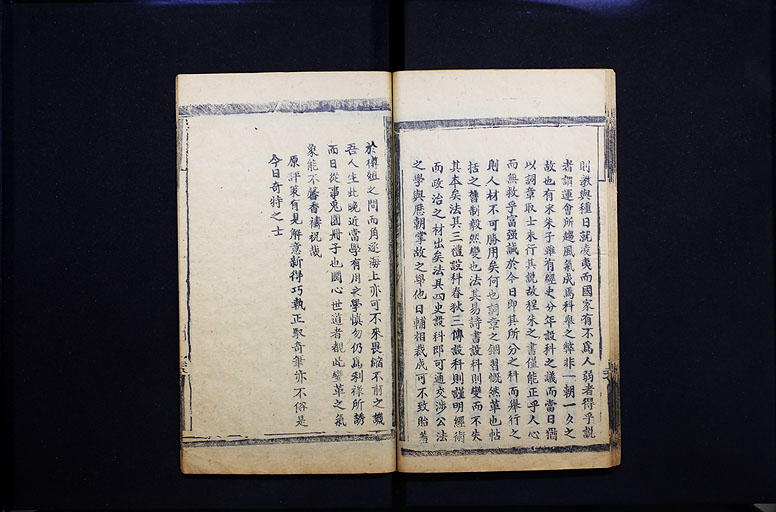 則教與種日就凌夷而國家有不為人弱者得乎說
者謂運會所趨風氣成爲科舉之弊非一朝一夕之
故也有宋朱子雖有經史分年設科之議而當日猶
以詞章取士未行其說故程朱之書僅能正乎人心
而無救乎富强誠於今日即其所分之科而舉行之
則人材不可勝用矣何也詞章之錮習慨然革也帖
括之舊制毅然變也法其易詩書設科則變而不失
其本矣法其三禮設科春秋三傳設科則謹明經術
而政治之材出矣法其四史設科即可通交涉公法
之學與歷朝掌故之學他日輔相裁成可不致貽羞
於樽俎之間而角逐海上亦可不來畏縮不前之譏
吾人生此晚近當學有用之學慎勿仍爲利祿所誘
而日從事兎園冊子也國心世道者覩此變革之氣
象能不馨香禱祝哉
原評策有見解意新得巧執正馭奇筆亦不俗是
今日奇特之士